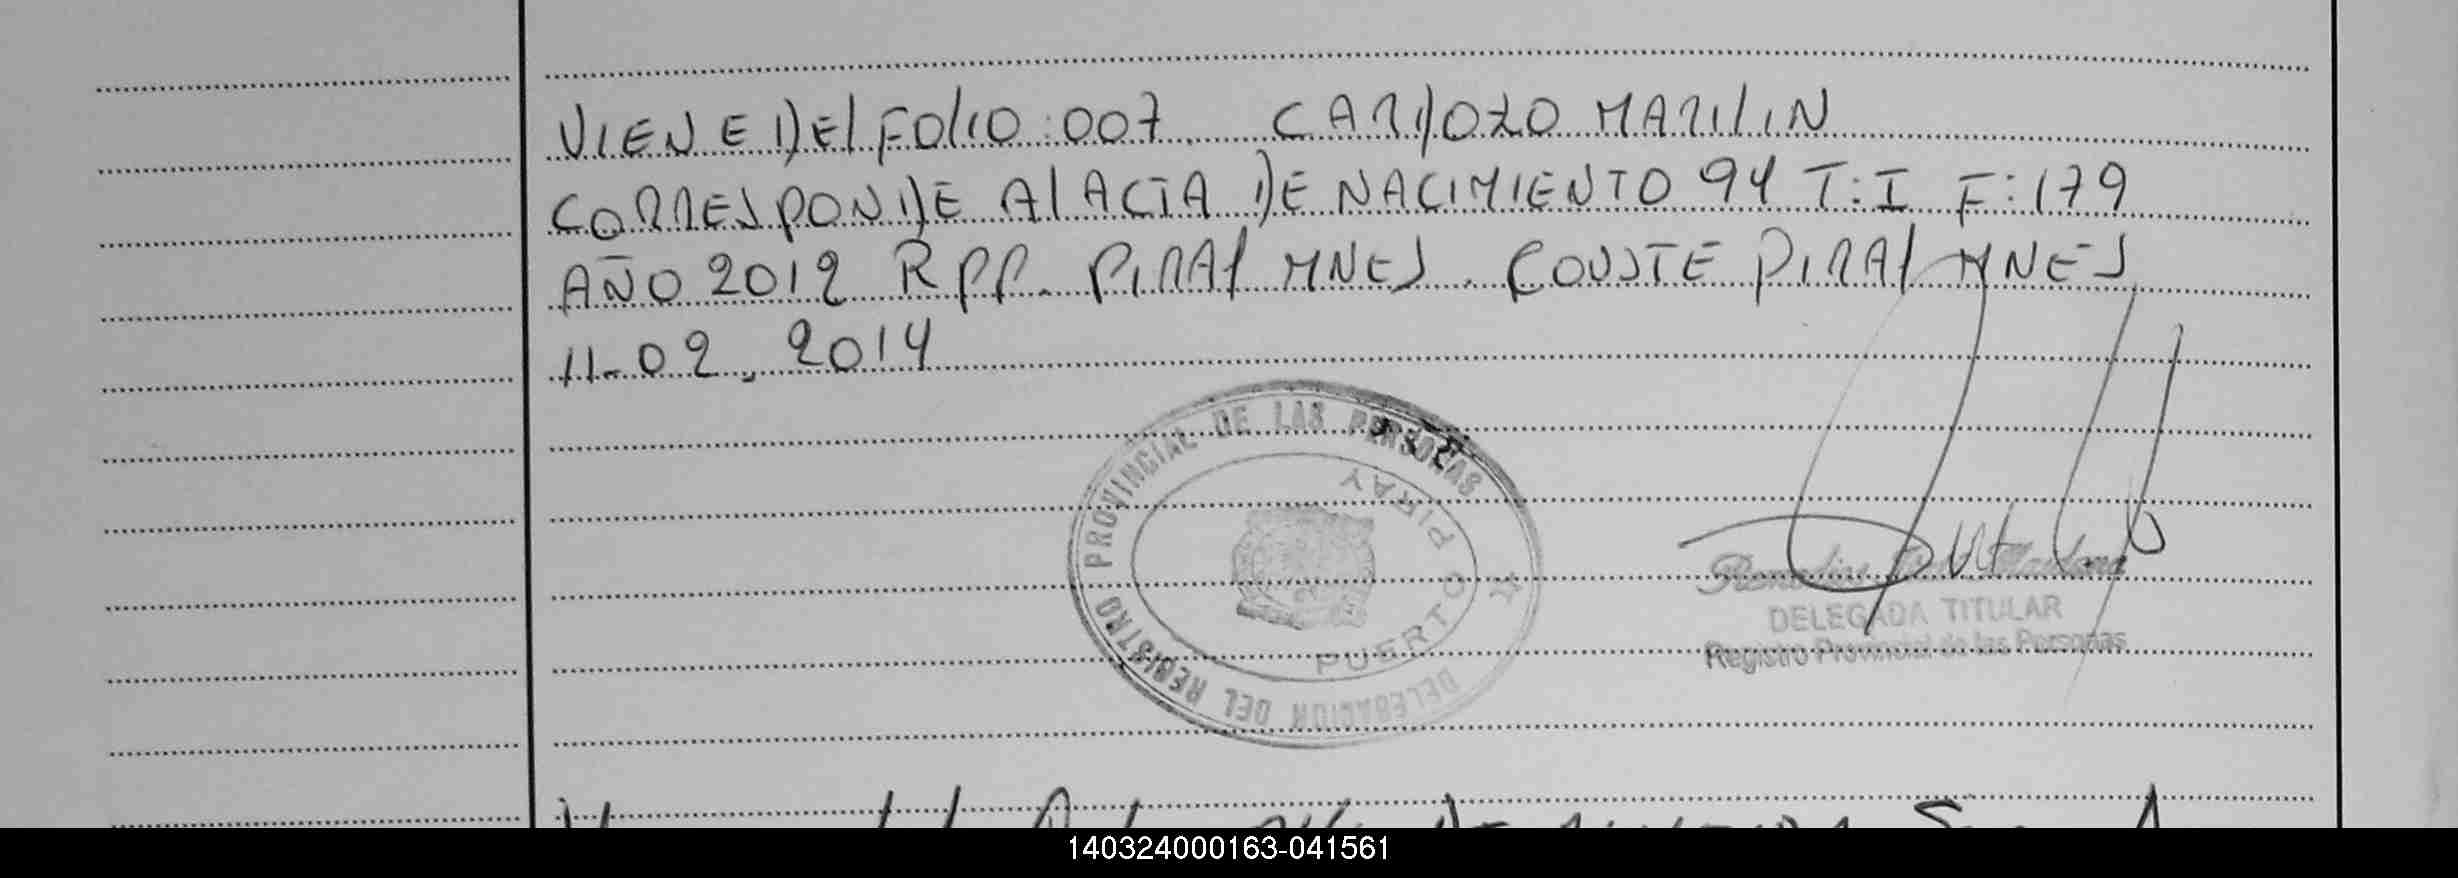 VIENE DEL FOLIO: 007. CARDOZO MARILIN
CORRESPONDE AL ACTA DE NACIMIENTO 94 T: I F: 179
AÑO 2012 RPP. PIRAY MNES. CONSTE PIRAY MNES
11-02, 2014
DELEGACION DEL REGISTRO PROVINCIAL DE LAS PERSONAS
PUERTO PIRAY
Remedios
DELEGADA TITULAR
Registro Provincial de las Personas
140324000163-041561